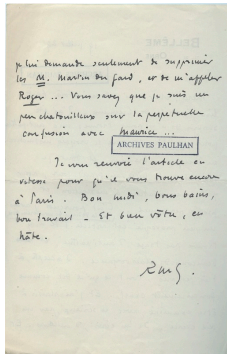 je lui demande seulement de supprimer
les M. Martin du Gard, et de m'appeler
Roger ... Vous savez que je suis un
peu chatouilleux sur la perpétuelle
confusion avec Maurice ...
ARCHIVES PAULHAN
Je vous renvoie l'article en
vitesse pour qu'il vous trouve encore
à Paris. Bon midi, bons bains,
bon travail - Et bien vôtre, en
hâte.